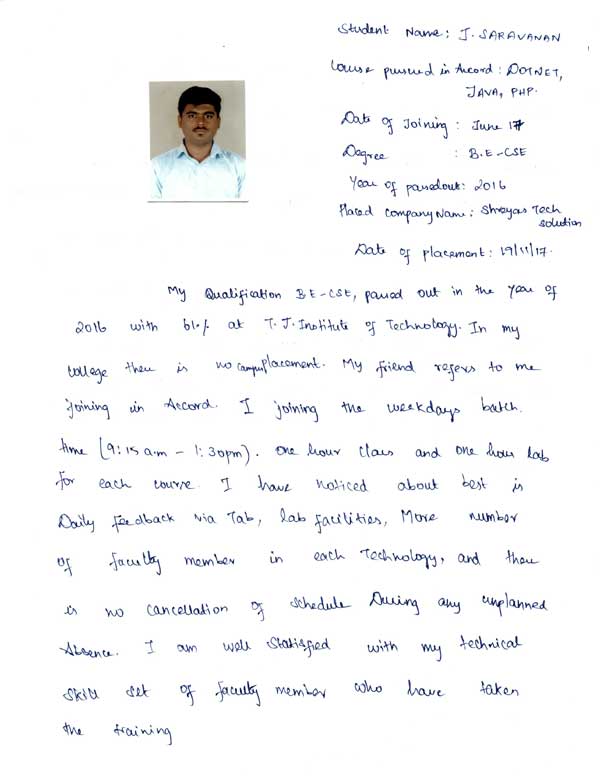 Student Name: J. SARAVANAN
Course pursued in Accord: DOTNET,
JAVA, PHP.
Date of Joining : June 17
Degree : B.E-CSE
Year of passedout: 2016
Placed Company Name: Shreyas Tech
solution
Date of placement: 19/11/17.
My Qualification BE-CSE, passed out in the year of
2016 with 61.% at T.J.Institute of Technology. In my
college there is no campus placement. My friend refers to me
joining in Accord. I joining the weekdays batch.
time (9:15 a.m - 1:30pm). One hour class and one hour lab
for each course. I have noticed about best is
Daily feedback via Tab, lab facilities, More number
of faculty member in each Technology, and there
is no cancellation of schedule During any unplanned
Absence. I am well Statisfied with my technical
skill set of faculty member who have taken
the training